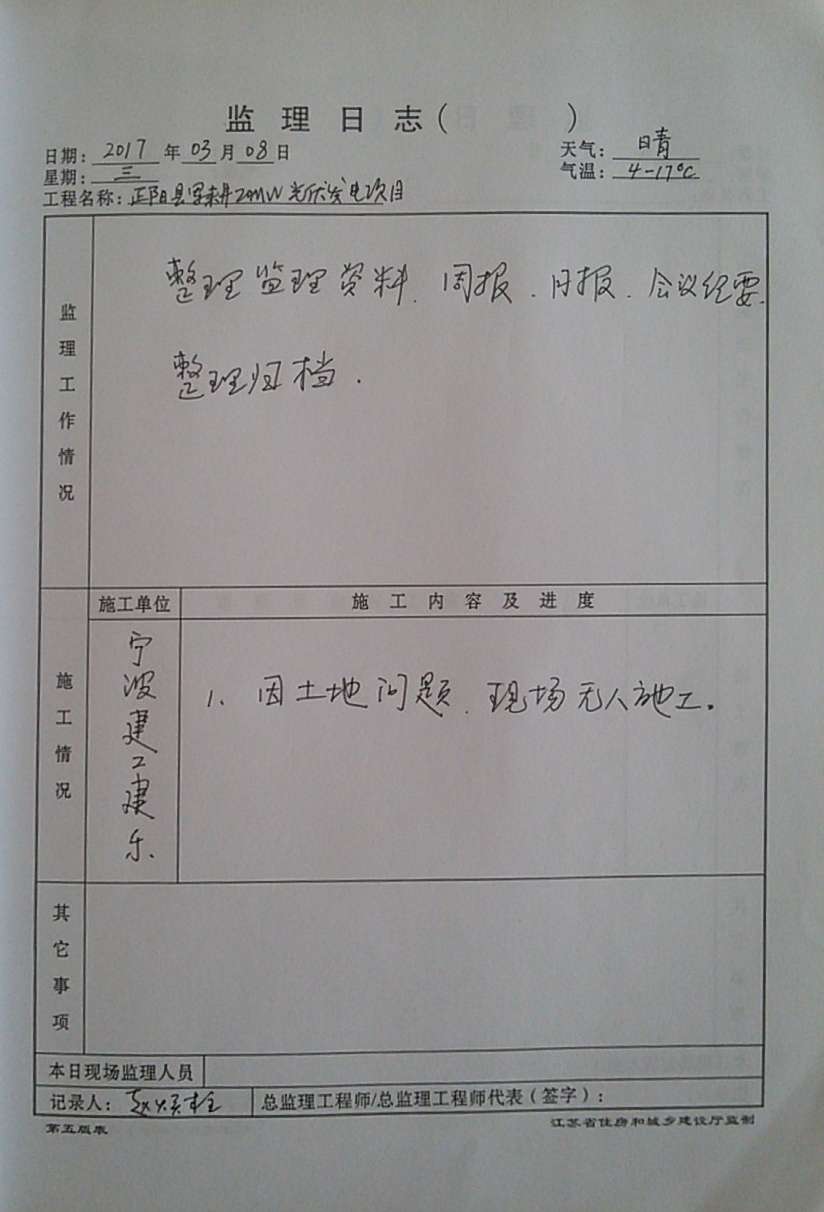 监理日志（ ）
日期：2017年03月08日
天气：晴
星期：三
气温：4-17℃
工程名称：正阳县 20MW光伏发电项目
监理工作情况
整理监理资料、周报、日报、会议纪要、
整理归档.
施工情况
施工单位
施工内容及进度
宁波建工建乐
1、因土地问题、现场无人施工。
其它事项
本日现场监理人员
记录人：赵
总监理工程师/总监理工程师代表（签字）：
第五版表
江苏省住房和城乡建设厅监制